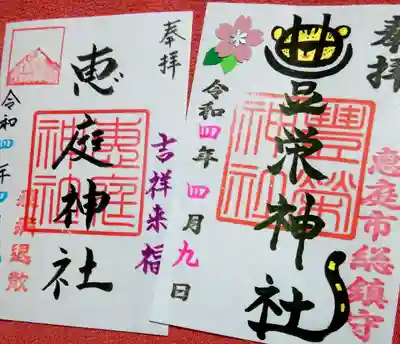 奉拝
豊栄神社
豊榮神社
恵庭市総鎮守
令和四年四月九日
奉拝
恵庭神社
恵庭神社
吉祥来福
令和四年
退散